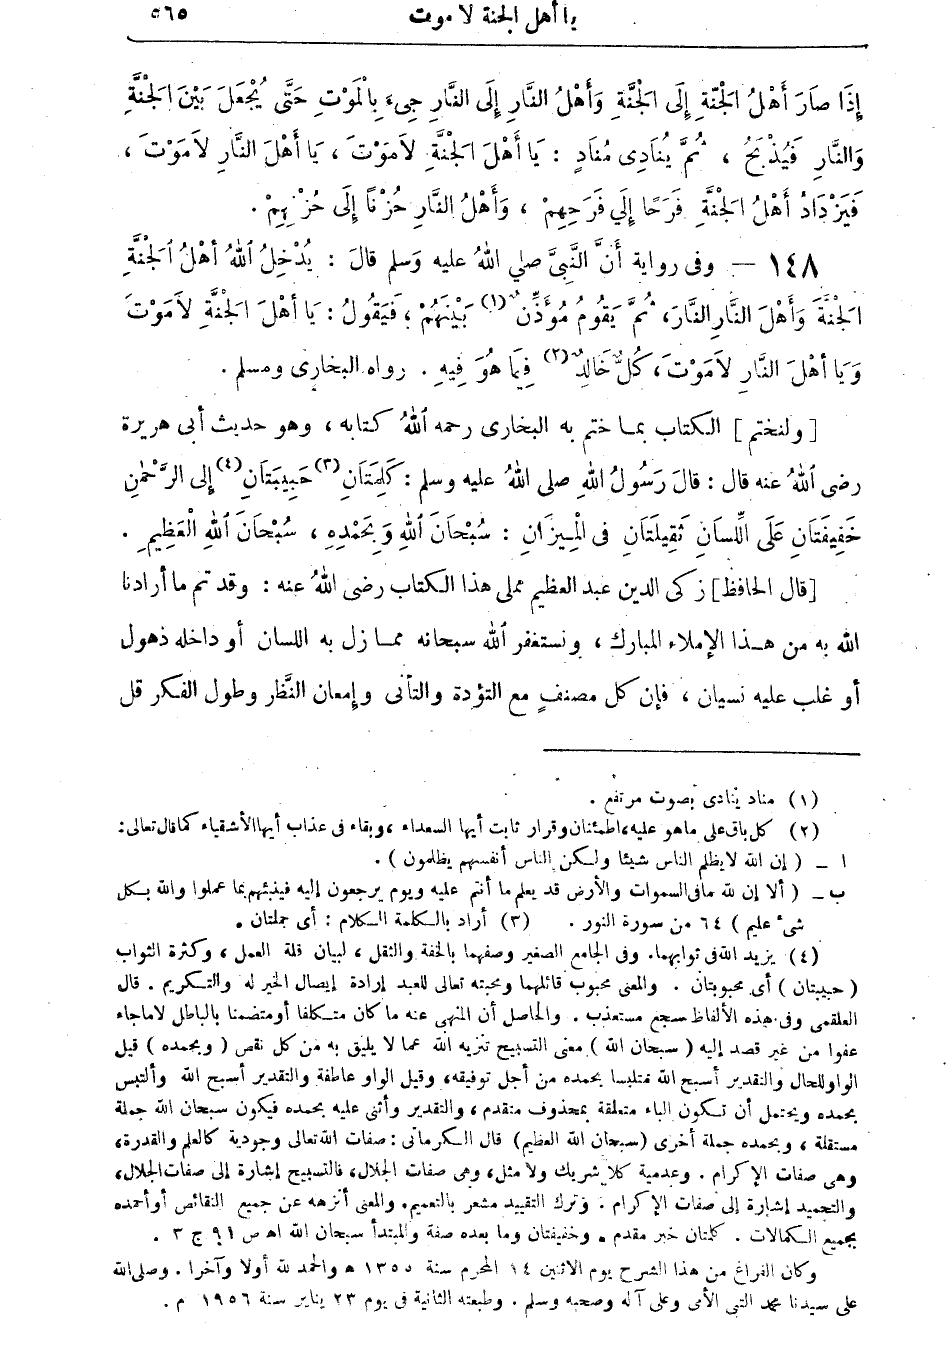 يا أهل الجنة لا موت ٥٦٥
إِذَا صَارَ أَهْلُ الْجَنَّةِ إِلَى الْجَنَّةِ وَأَهْلُ النَّارِ إِلَى النَّارِ جِىءَ بِالْمَوْتِ حَتَّى يُجْعَلَ بَيْنَ الْجَنَّةِ
وَالنَّارِ فَيُذْبَحُ ، ثُمَّ يُنَادِى مُنَادٍ : يَا أَهْلَ الْجَنَّةِ لاَمَوْتَ ، يَا أَهْلَ النَّارِ لاَمَوْتَ ،
فَيَزْدَادُ أَهْلُ الْجَنَّةِ فَرَحًا إِلَي فَرَحِهِمْ ، وَأَهْلُ النَّارِ حُزْنًا إِلَى حُزْنِهِمْ .
١٤٨ — وفى رواية أَنَّ النَّبِىَّ صلى اللهُ عليه وَسلم قالَ : يُدْخِلُ اللهُ أهْلُ الْجَنَّةِ
الْجَنَّةَ وَأَهْلَ النَّارِ النَّارَ، ثُمَّ يَقُومُ مُؤَذِّنٌ (١) بَيْنَهُمْ ، فَيَقُولُ : يَا أهْلَ الْجَنَّةِ لاَمَوْتَ
وَيَا أهْلَ النَّارِ لاَمَوْتَ، كُلٌّ خَالِدٌ (٢) فِيمَا هُوَ فِيهِ . رواه البخارى ومسلم .
[ولنختم] الكتاب بمـا ختم به البخارى رحمه اللهُ كتابه ، وهو حديث أبى هريرة
رضى اللهُ عنه قال : قالَ رَسُولُ اللهِ صلى اللهُ عليه وسلم : كَلِمَتَانِ (٣) حَبِيبَتَانِ (٤) إلى الرَّحْمٰنِ
خَفِيفَتَانِ عَلَى اللِّسَانِ ثَقِيلَتَانِ فى الْمِيزَانِ : سُبْحَانَ اللهِ وَبِحَمْدِهِ ، سُبْحَانَ اللهِ الْعَظِيمِ .
[قال الحافظ] زكى الدين عبد العظيم مملى هذا الكتاب رضى اللهُ عنه : وقد تم ما أرادنا
الله به من هـذا الإملاء المبارك ، ونستغفر الله سبحانه ممـا زل به اللسان أو داخله ذهول
أو غلب عليه نسيان ، فإن كل مصنفٍ مع التؤدة والتأنى وإمعان النَّظر وطول الفكر قل
(١) مناد ينادى بصوت مرتفع .
(٢) كل باق على ماهو عليه، اطمئنان وقرار ثابت أيها السعداء ، وبقاء فى عذاب أيها الأشقياء كما قال تعالى :
ا ـ ( إن الله لا يظلم الناس شيئا ولكن الناس أنفسهم يظلمون ) .
ب ـ ( ألا إن لله مافى السموات والأرض قد يعلم ما أنتم عليه ويوم يرجعون إليه فينبئهم بما عملوا والله بكل
شىء عليم ) ٦٤ من سورة النور . (٣) أراد بالكلمة الكلام : أى جملتان .
(٤) يزيد الله فى ثوابهما. وفى الجامع الصغير وصفهما بالخفة والثقل ، لبيان قلة العمل ، وكثرة الثواب
( حبيبتان ) أى محبوبتان . والمعنى محبوب قائلهما ومحبته تعالى للعبد إرادة إيصال الخير له والتكريم . قال
العلقمى وفى هذه الألفاظ سجع مستعذب . والحاصل أن المنهى عنه ما كان متكلفا أو متضمنا بالباطل لا ماجاء
عفوا من غير قصد إليه ( سبحان الله ) معنى التسبيح تنزيه الله عما لا يليق به من كل نقص ( وبحمده ) قيل
الواو للحال والتقدير أسبح الله متلبسا بحمده من أجل توفيقه، وقيل الواو عاطفة والتقدير أسبح الله وألتبس
بحمده ويحتمل أن تكون الباء متعلقة بمحذوف متقدم ، والتقدير وأثنى عليه بحمده فيكون سبحان الله جملة
مستقلة ، وبحمده جملة أخرى (سبحان الله العظيم) قال الكرمانى : صفات الله تعالى وجودية كالعلم والقدرة،
وهى صفات الإكرام . وعدمية كلا شريك ولا مثل، وهى صفات الجلال، فالتسبيح إشارة إلى صفات الجلال،
والتحميد إشارة إلى صفات الإكرام . وترك التقييد مشعر بالتعميم. والمعنى أنزهه عن جميع النقائص أو أحمده
بجميع الكمالات . كلمتان خبر مقدم . وخفيفتان وما بعده صفة والمبتدأ سبحان الله اهـ ص ٩١ ج ٣ .
وكان الفراغ من هذا الشرح يوم الاثنين ١٤ المحرم سنة ١٣٥٥ هـ والحمد لله أولا وآخرا . وصلى الله
على سيدنا محمد النبى الأمى وعلى آله وصحبه وسلم . وطبعته الثانية فى يوم ٢٣ يناير سنة ١٩٥٦ م .